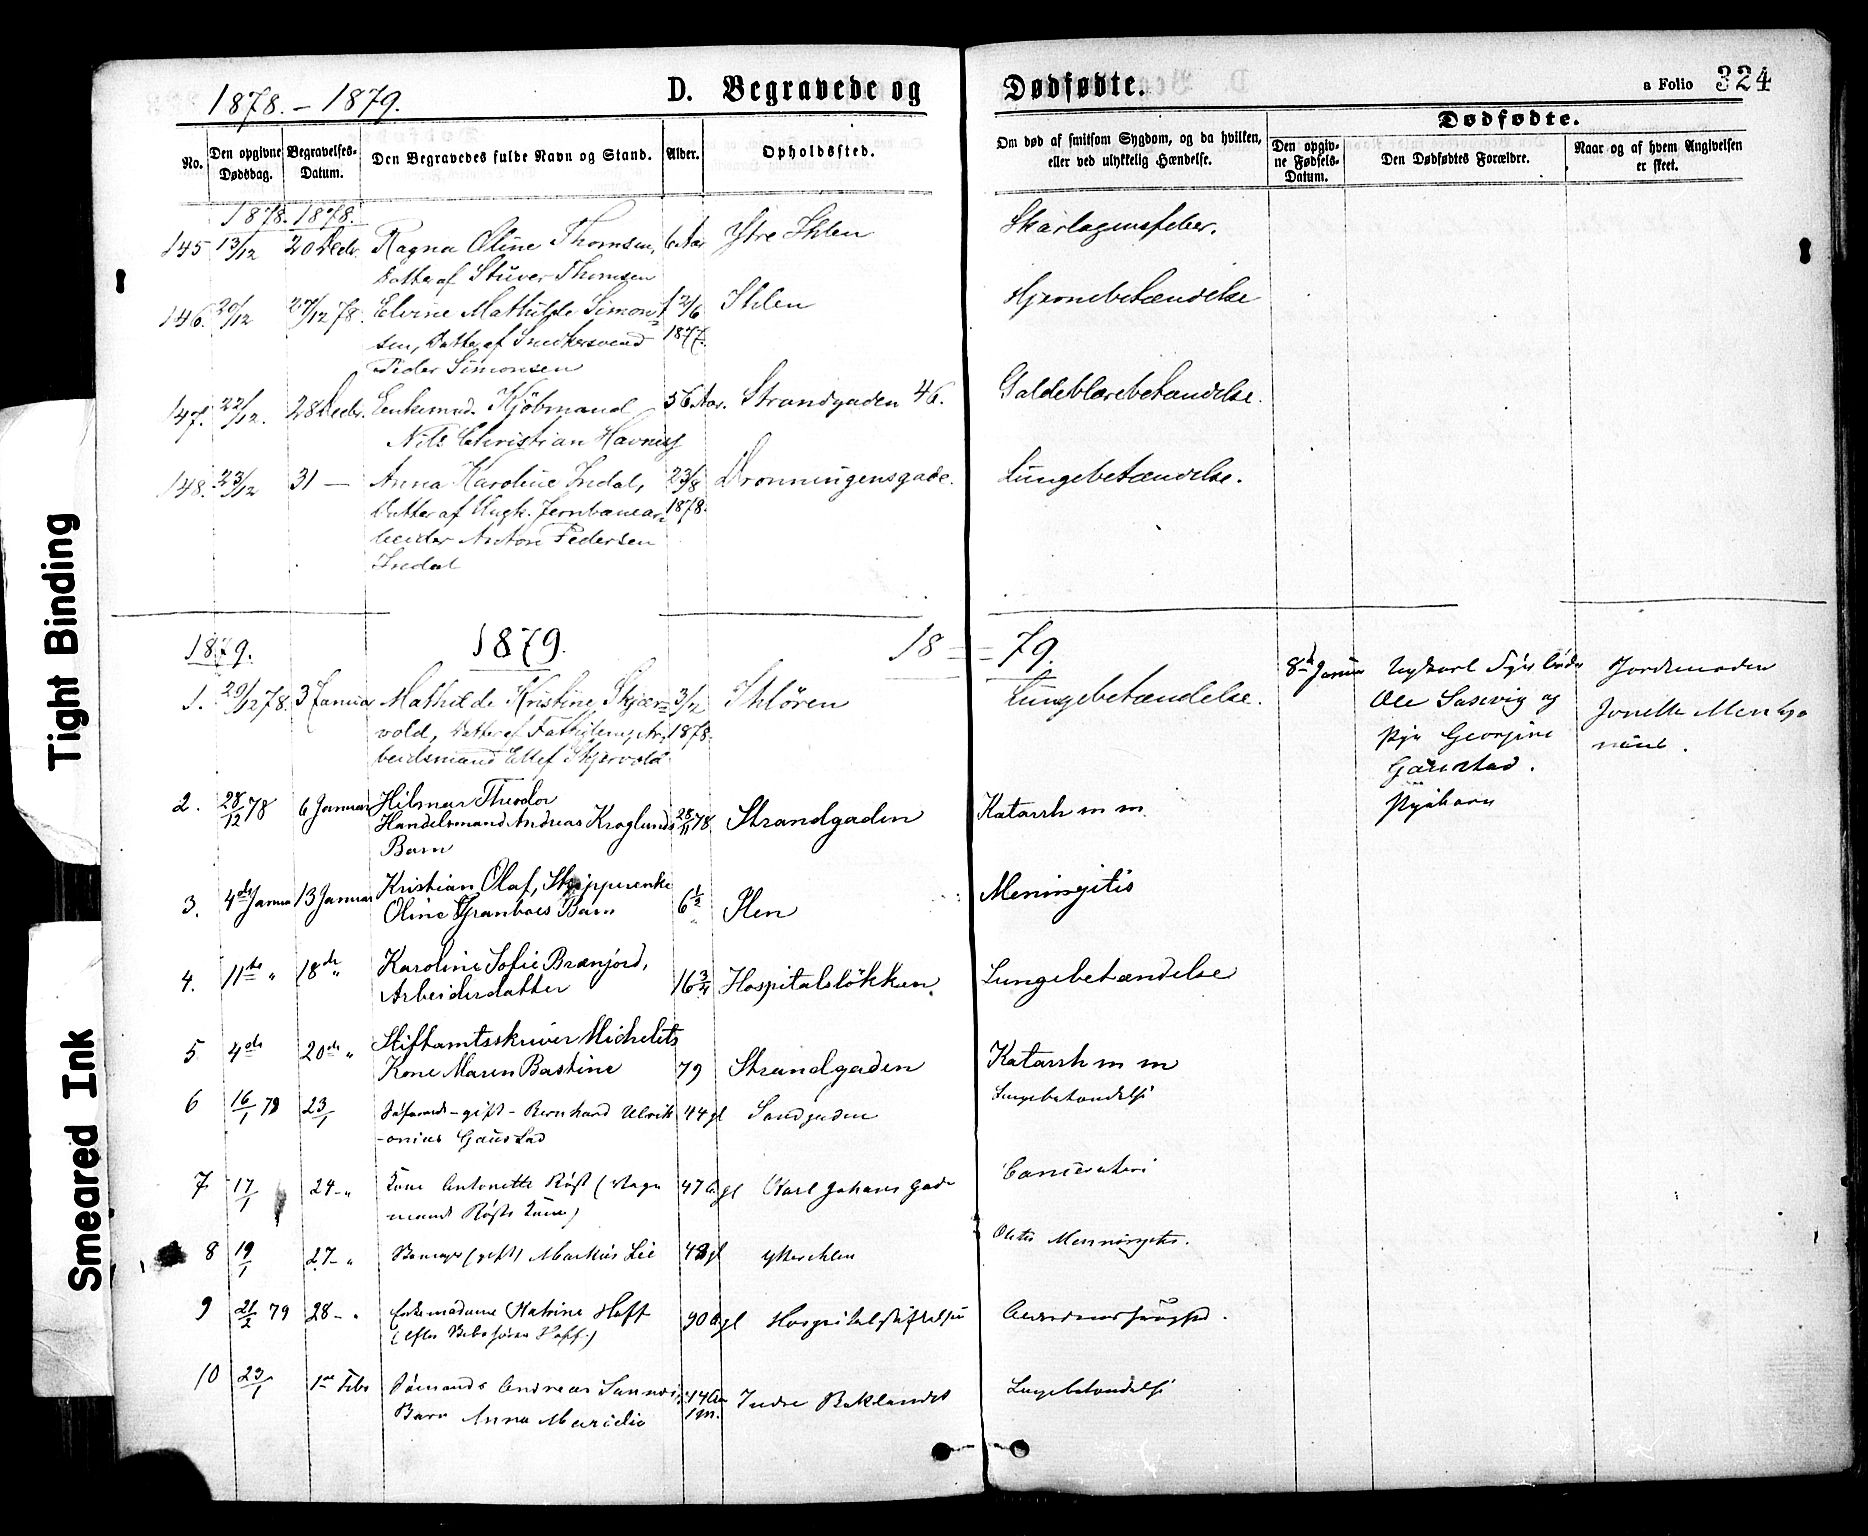 1878. – 1879.
D. Begravede og Dødfødte.
a Folio 324
No.
Den opgivne Dødsdag.
Begravelses-Datum.
Den Begravedes fulde Navn og Stand.
Alder.
Opholdssted.
Om død af smitsom Sygdom, og da hvilken,
eller ved ulykkelig Hændelse.
Dødfødte.
Den opgiv-
ne Fødsels-
Datum.
Den Dødfødtes Forældre.
Naar og af hvem Angivelsen
er skeet.
1878. 1878.
145 13/12 20 Decbr. Ragna Oline Thomsen, 6 Aar Ytre Ihlen Skarlagensfeber.
Datter af Stuver Thomsen
146. 20/12 27/12 78. Elvine Mathilde Simon= 12/6 Ihlen Hjernebetændelse
sen, Datter af Snedkersvend 1877.
Peder Simonsen
147. 22/12. 28 Decbr. Enkemd. Kjöbmand 56 Aar. Strandgaden 46. Galdeblærebetændelse.
Nils Christian Havnes
148. 23/12 31 — Anna Karoline Indal, 23/8 Dronningensgade. Lungebetændelse.
Datter af Ungk. Jernbanear= 1878.
beider Anton Pedersen
Indal
1879. 1879. 18 = = 79.
1. 29/12 78. 3 Januar Mathilde Kristine Skjær= 3/12 Ihlören Lungebetændelse.
vold, Datter af Fattiglem, Ar= 1878.
beidsmand Ellef Skjervold
8de Januar
Ungkarl
Ole Sasevig og
Pige Georgine
Gaustad.
Pigebarn
Jordemoder
Jonette
2. 28/12 78 6 Januar Hilmar Theodor
Handelsmand Andreas Kroglunds 28/11 78. Strandgaden Katarrh m m.
Barn
3. 4de Januar 13 Januar Kristian Olaf, Skipperenke
Oline Granboes Barn 6 1/2 Ilen Meningitis
4. 11te " 18de " Karoline Sofie Brænjord, 16 3/4 Hospitalslökken. Lungebetændelse
Arbeiderdatter
5 4de 20de " Stiftamtsskriver Michelets
Kone Maren Bastine 79 Strandgaden Katarrh m m
6 16/1 79 23/1 – gift – Bernhard Ulrik 44 gl Sandgaden Lungebetændelse
Gaustad
7 17/1 24 – " Kone Antonette Røst ( Vogn 47 gl Karl Johans Gade
mand Røsts Kone)
8 19/1 27 – " (gift) Markus Lie 48 gl Ytterihlen
9 21/2 79 28 – " Enkemadame Katrine Hoff 90 gl Hospitalstiftelsen Alderdomssvaghed.
(efter Hoff.)
10 23/1 1ste Febr Sømands Andreas Barn Anna Indre Baklandet Lungebetændelse
1 M.
Tight Binding
Smeared Ink